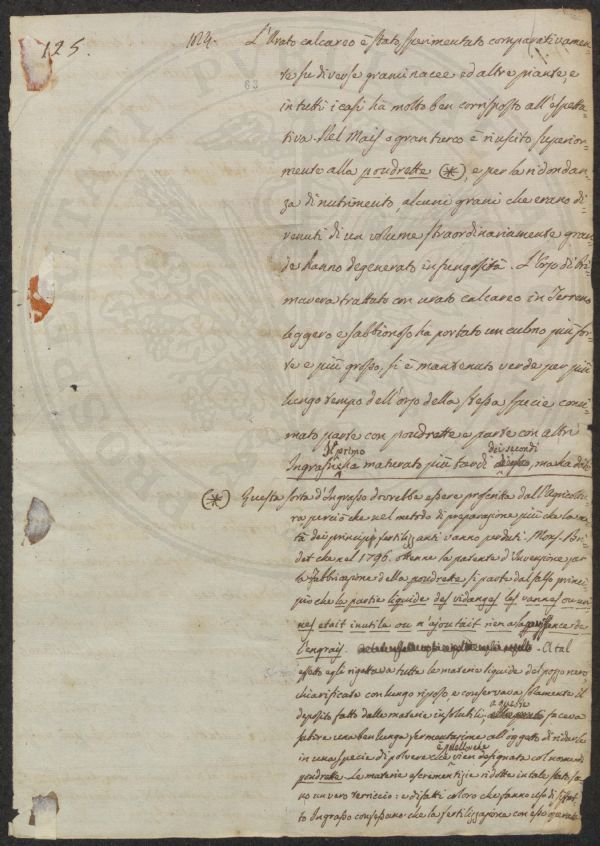 125.
1824.
63
L'Urato calcareo è stato sperimentato comparativamen-
te su diverse graminacee ed altre piante, e
in tutti i casi ha molto ben corrisposto all'espetta-
tiva. Nel Mais o gran turco è riuscito superior-
mente alla poudrette (*), e per la ridondan-
za di nutrimento, alcuni grani che erano di-
venuti di un volume straordinariamente gran-
de hanno degenerato in fungosità. L'Orzo di Pri-
mavera trattato con urato calcareo in terreno
leggero e sabbionoso ha portato un culmo più for-
te e più grosso, si è mantenuto verde per più
lungo tempo dell'orzo della stessa specie conci-
mato parte con poudrette e parte con altri
Il primo dei secondi
Ingrassi, ha maturato più tardi ma ha
(*) Questa sorta d'Ingrasso dovrebbe essere preferita dall'Agricolto-
re perciò che nel metodo di preparazione più che la me-
tà dei principj fertilizzanti vanno perduti. Mons. Bri-
det che nel 1796. ottenne la patente d'Invenzione per
la fabbricazione della poudrette si parte dal falso princi-
pio che la partie liquide des vidanges les vannes ou uri-
nes etait inutile ou n'ajoutait rien a la puissance de
l'engrais. A tal
effetto egli rigettava tutte le materie liquide del pozzo nero,
chiarificate con lungo riposo, e conservava solamente il
deposito fatto dalle materie insolubili, a queste faceva
subire una ben lunga fermentazione all'oggetto di ridurle
in una specie di polvere e quella che vien designata col nome di
poudrette. Le materie escrementizie ridotte in tale stato so-
no un vero terriccio: e difatti coloro che fanno uso di
to Ingrasso confessano che la fertilizzazione con esso operata